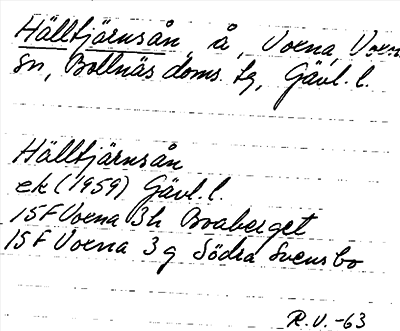 Hälltjärnsån, å, Voxna, Voxna
sn, Bollnäs doms. tg, Gävl. l.
Hälltjärnsån
ek (1959) Gävl. l.
15F Voxna 3h Boaberget
15F Voxna 3g Södra Svensbo
R.V.-63